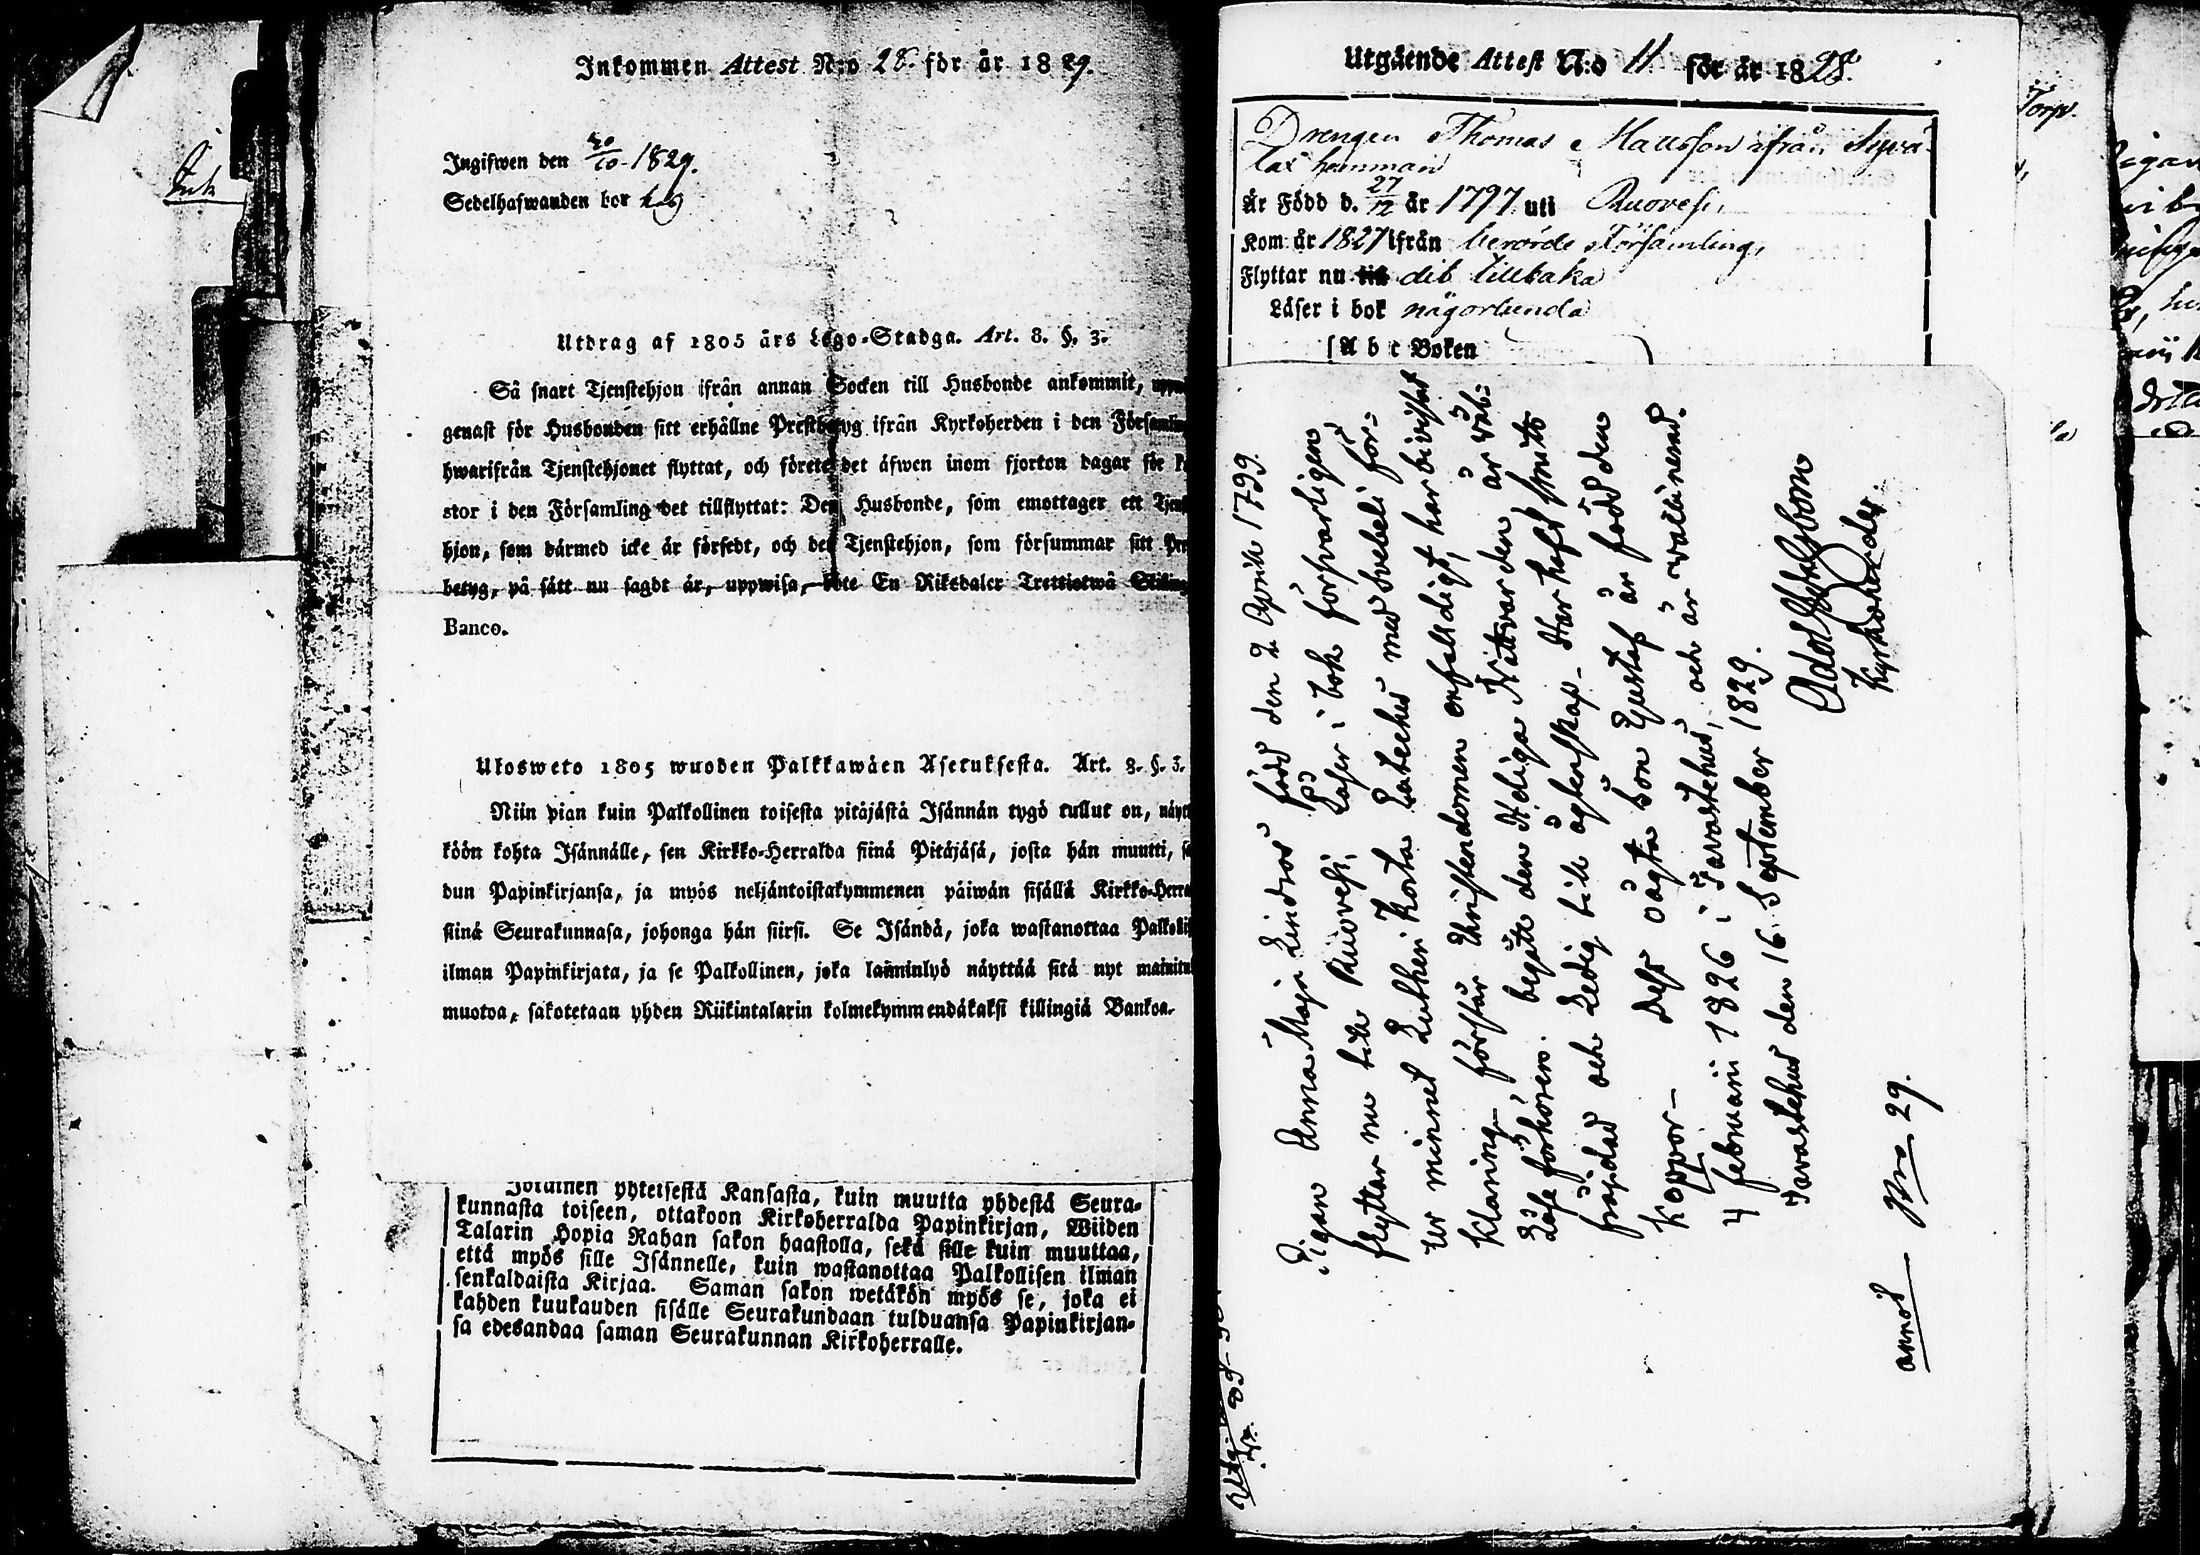 Inkommen Attest N:o 28. för år 1829.
Ingifwen den 20/10 1829.
Sedelhafwanden bor hos
Utdrag af 1805 års Lego-Stadga. Art. 8. §. 3.
Så snart Tjenstehjon ifrån annan Socken till Husbonde ankommit,
genast för Husbonden sitt erhållne Prestbetyg ifrån Kyrkoherden i den
hwarifrån Tjenstehjonet flyttat, och förete det äfwen inom fjorton dagar för
stor i den Församling det tillflyttat: Den Husbonde, som emottager ett
hjon, som därmed icke är försedt, och det Tjenstehjon, som försummar sitt
betyg, på sätt nu sagdt är, uppwisa, böte En Riksdaler Trettiotwå
Banco.
Ulosweto 1805 wuoden Palkkawäen Asetuksesta. Art. 8. §. 3.
Niin pian kuin Palkollinen toisesta pitäjästä Isännän tygö tullut on,
köön kohta Isännälle, sen Kirkko-Herralda siinä Pitäjäsä, josta hän muutti,
dun Papinkirjansa, ja myös neljäntoistakymmenen päiwän sisällä
siinä Seurakunnasa, johonga hän siirsi. Se Isändä, joka wastanottaa
ilman Papinkirjata, ja se Palkollinen, joka laiminlyö näyttää sitä nyt
muotoa, sakotetaan yhden Riikintalarin kolmekymmendäkaksi killingiä Bankoa.
yhteisestä Kansasta, kuin muutta yhdestä Seura-
kunnasta toiseen, ottakoon Kirkoherralda Papinkirjan, Wiiden
Talarin Hopia Rahan sakon haastolla, sekä sille kuin muuttaa,
että myös sille Isännelle, kuin wastanottaa Palkollisen ilman
senkaldaista Kirjaa. Saman sakon wetäkön myös se, joka ei
kahden kuukauden sisälle Seurakundaan tulduansa Papinkirjan-
sa edesandaa saman Seurakunnan Kirkoherralle.
Utgående Attest N:o 11 för år 1828.
Drengen Thomas Matsson ifrån
hemman
Är Född d. 27/12 år 1797 uti Ruovesi,
Kom år 1827 ifrån berörde Församling,
Flyttar nu till dit tillbaka
Läser i bok någorlunda
A b c Boken
Pigan Anna Maja Lindros född den 2 April 1799.
flyttar nu till Ruovesi. Läser i bok försvarligen,
ur minnet Lutheri Korta Cateches med Svebeli för-
klaring, förstår Christendomen enfaldigt, har bivistat
Läseförhören, begått den H. Heliga Nattvarden, är väl
frejdad och Ledig till äghtenskap. Har haft smitto
Koppor – Dess oägta Son Gustaf är född den
4 februarii 1826 i Tavastehus, och är vaccinerad.
Tavastehus den 16 September 1829.
Kyrkoherde.
Nro 29.
Torp.